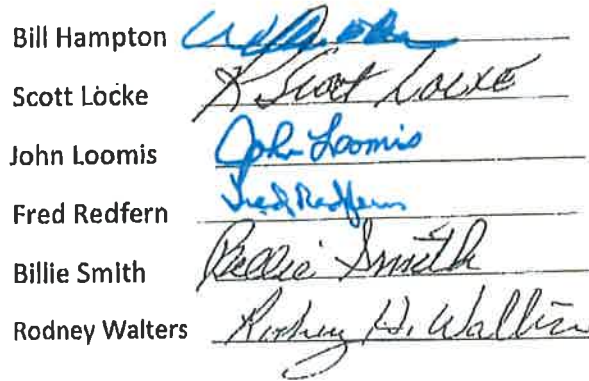 Bill Hampton
Scott Locke K Scott Locke
John Loomis John Loomis
Fred Redfern Fred Redfern
Billie Smith Billie Smith
Rodney Walters Rodney H. Walters